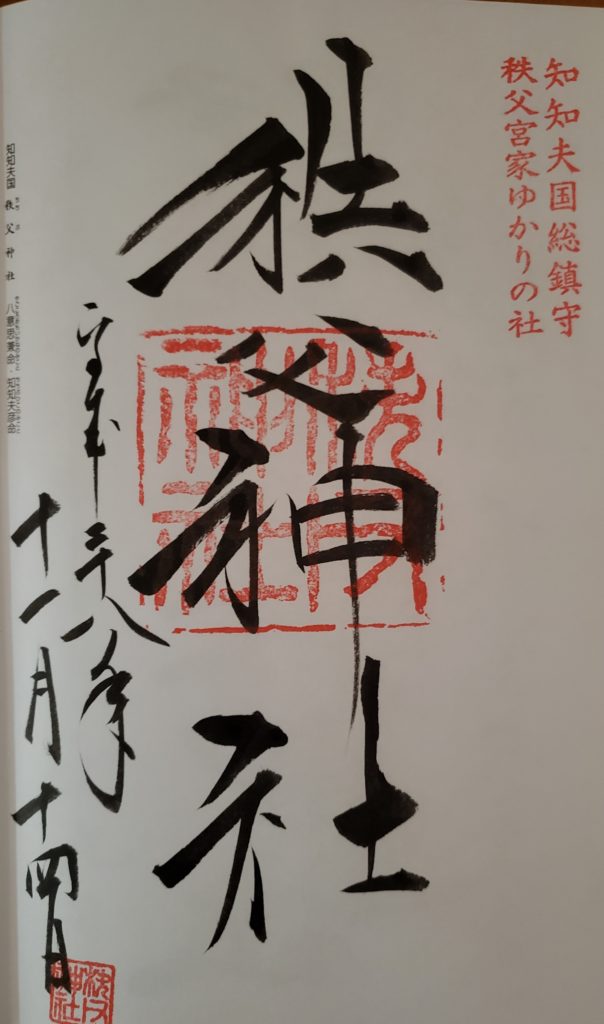 知知夫国総鎮守
秩父宮家ゆかりの社
秩父神社
秩父神社
平成二十八年
十一月十四日
秩父神社
知知夫国 秩父神社 八意思兼命・知知夫彦命